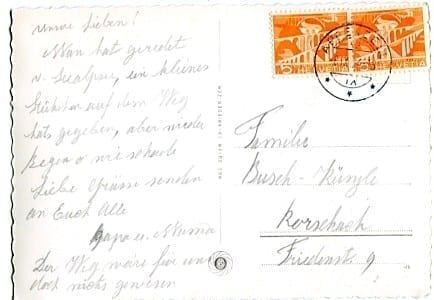 Unsere Lieben!
Man hat geredet
v. Seealpsee, ein kleines
Stückchen auf dem Weg
hats gegeben, aber wieder
Regen o wie schade
Liebe Grüsse senden
an Euch Alle
Papa u. Mumma
Der Weg wäre für uns
doch nichts gewesen
5 HELVETIA
Familie
Busch-Künzle
Rorschach
Friedenst. 9